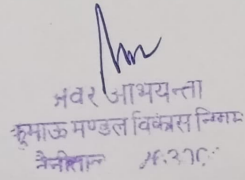 अवर अभियन्ता
कुमाऊ मण्डल विकास निगम
नैनीताल